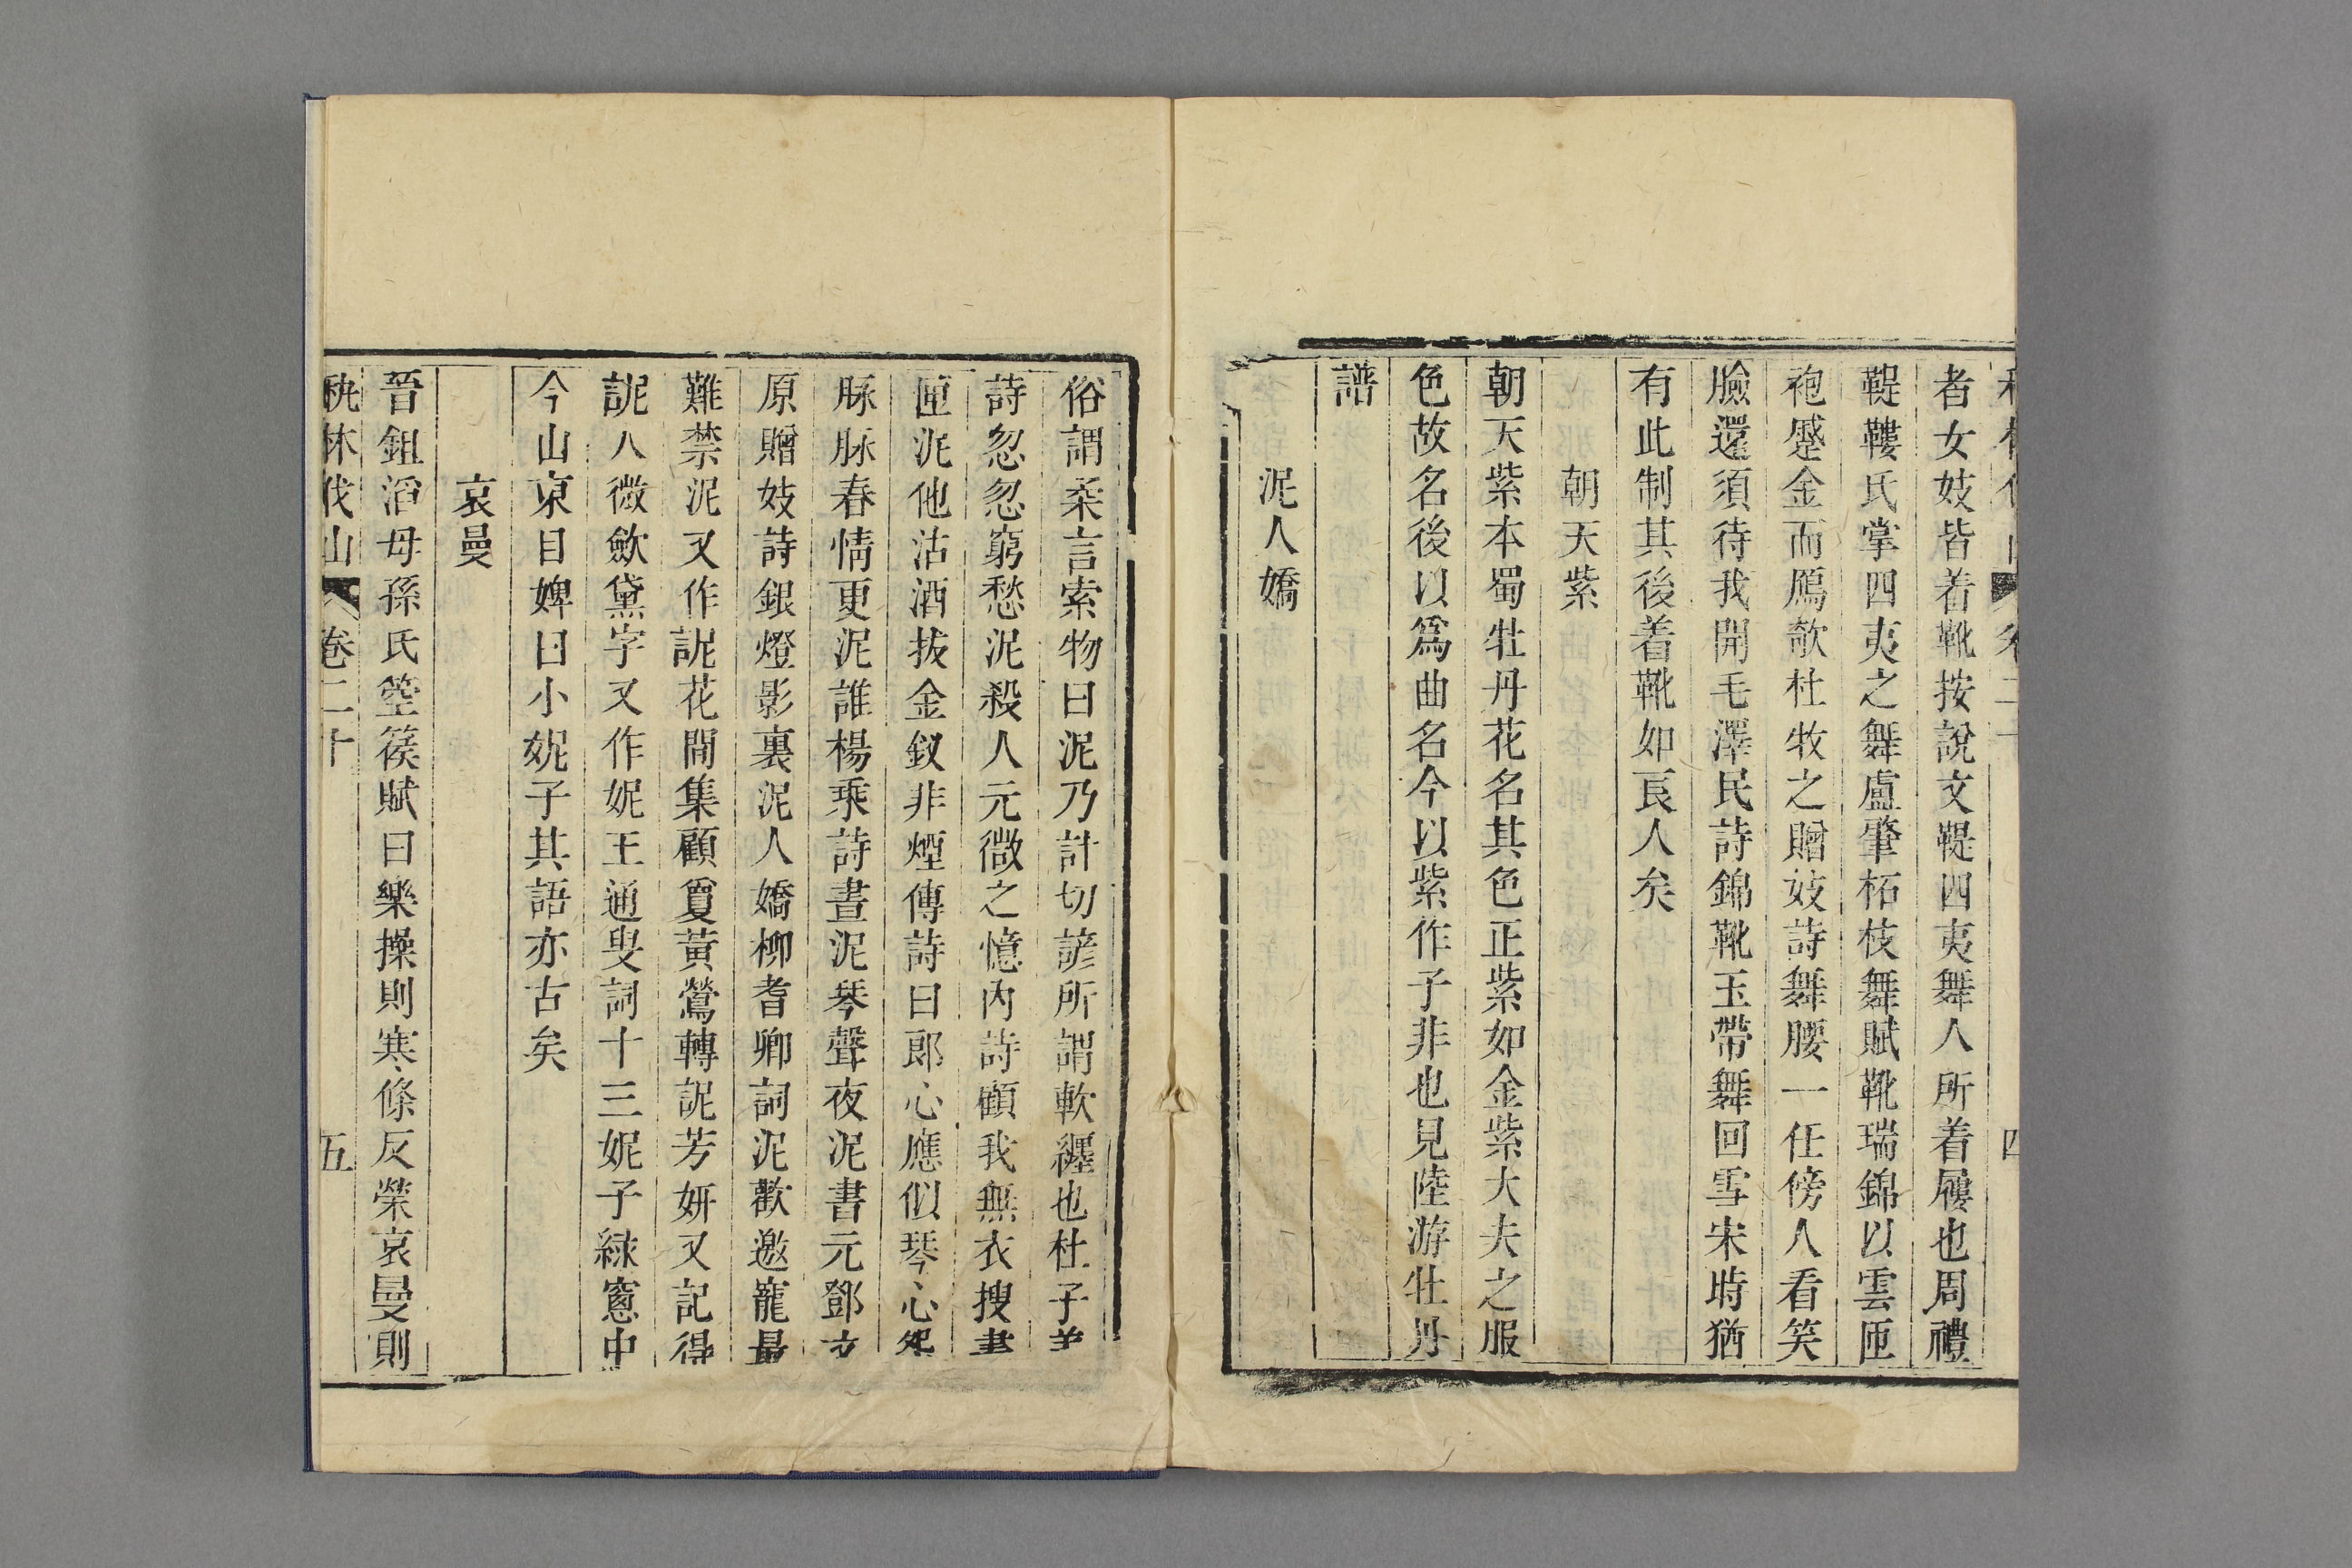 者女妓皆着靴按說文鞮四夷舞人所着屨也周禮
鞮鞻氏掌四夷之舞盧肇柘枝舞賦靴瑞錦以雲匝
袍蹙金而鴈欹杜牧之贈妓詩舞腰一任傍人看笑
臉還須待我開毛澤民詩錦靴玉帶舞回雪宋時猶
有此制其後着靴如良人矣
朝天紫
朝天紫本蜀牡丹花名其色正紫如金紫大夫之服
色故名後以爲曲名今以紫作子非也見陸游牡丹
譜
泥人嬌
俗謂柔言索物曰泥乃計切諺所謂軟纏也杜子美
詩忽忽窮愁泥殺人元微之憶內詩顧我無衣搜畫
匣泥他沽酒拔金釵非煙傳詩曰郎心應似琴心怨
脉脉春情更泥誰楊乘詩晝泥琴聲夜泥書元鄧文
原贈妓詩銀燈影裏泥人嬌柳耆卿詞泥歡邀寵最
難禁泥又作䛏花間集顧敻黃鶯轉䛏芳妍又記得
䛏人微歛黛字又作妮王通叟詞十三妮子綠窓中
今山東目婢曰小妮子其語亦古矣
哀曼
晉鈕滔母孫氏箜篌賦曰樂操則寒條反榮哀曼則
秇林伐山 卷二十 五